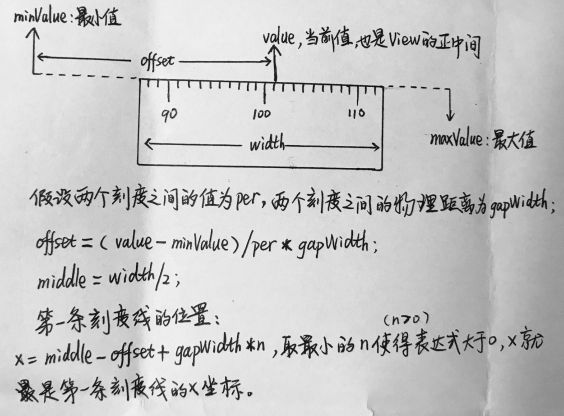 minValue:最小值
value,当前值,也是View的正中间
offset
90 100 110
width
maxValue:最大值
假设两个刻度之间的值为per,两个刻度之间的物理距离为gapWidth;
offset=(value-minValue)/per*gapWidth;
middle=width/2;
第一条刻度线的位置:
(n≥0)
x=middle-offset+gapWidth*n,取最小的n使得表达式大于0,x就
是第一条刻度线的x坐标。